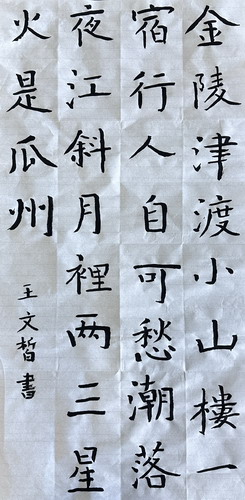 金陵津渡小山樓一
宿行人自可愁潮落
夜江斜月裡两三星
火是瓜州
王文皙書